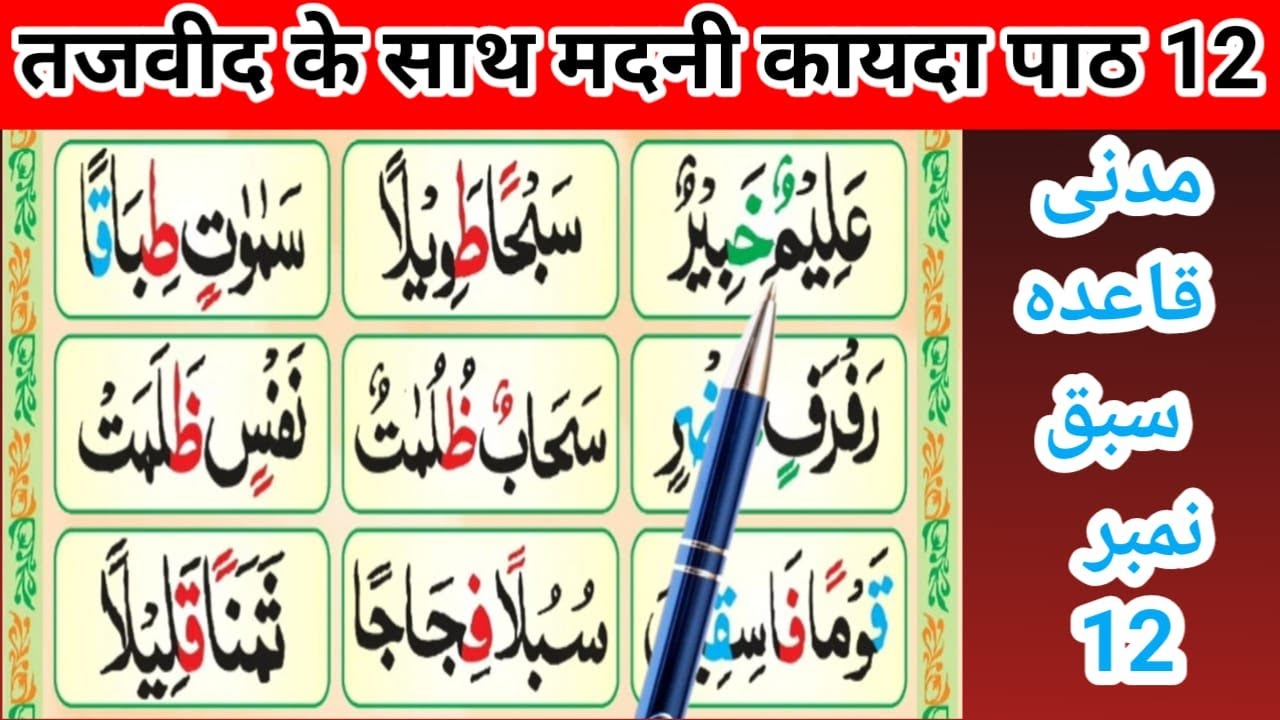 तजवीद के साथ मदनी कायदा पाठ 12
عَلِيْمٌ خَبِيْرٌ
سَبْحًا طَوِيْلًا
سَمٰوٰتٍ طِبَاقًا
رَفْرَفٍ
سَحَابٌ ظُلُمٰتٌ
نَفْسٍ ظَلَمَتْ
قَوْمًا
سُبُلًا فِجَاجًا
ثَمَنًا قَلِيْلًا
مدنی
قاعدہ
سبق
نمبر
12